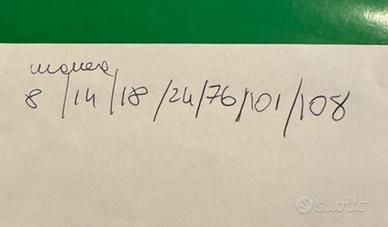 8/14/18/24/76/101/108
subito